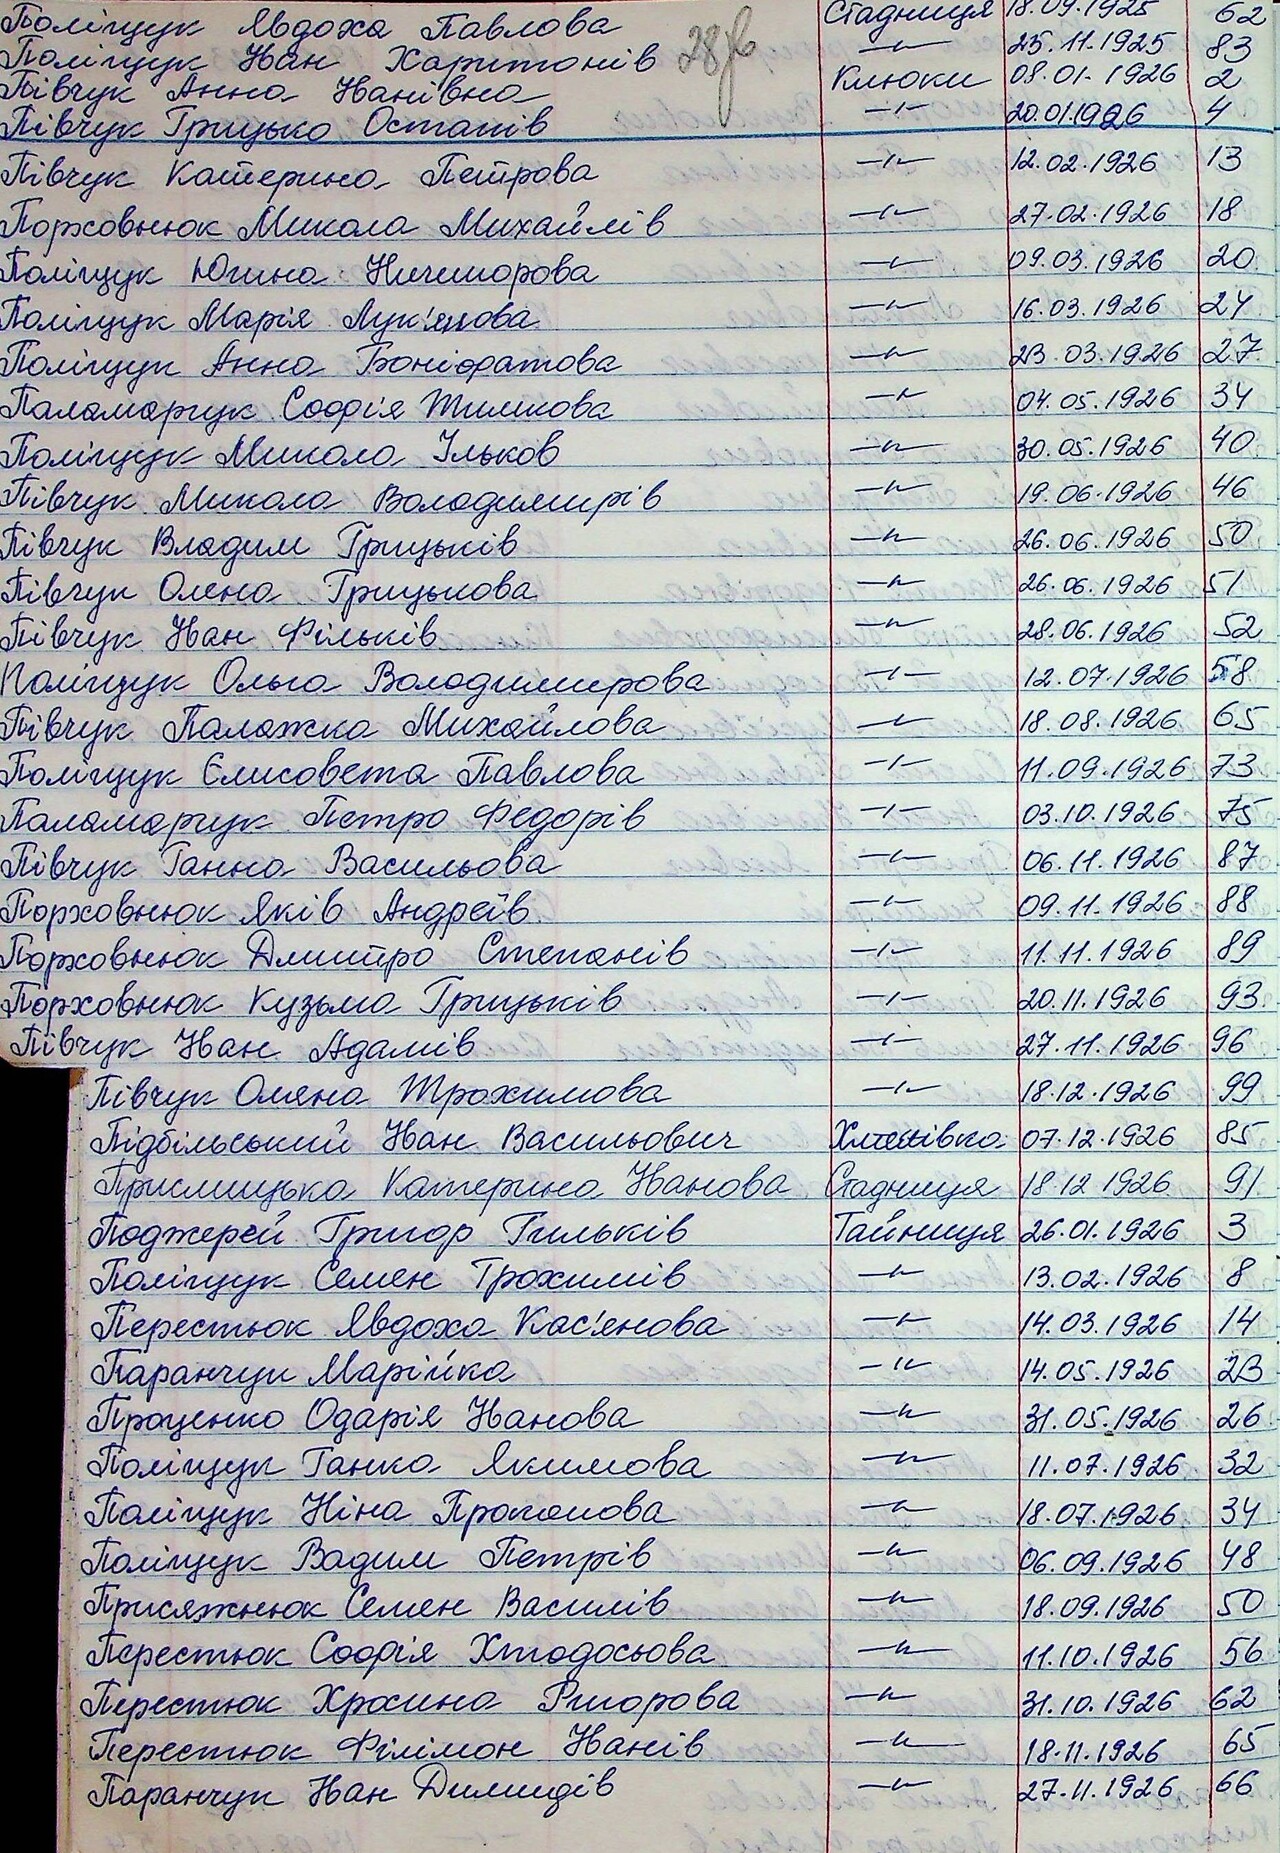 Поліщук Явдоха Павлова Стадниця 18.09.1925 62
Поліщук Іван Харитонів —"— 25.11.1925 83
28зв
Півчук Анна Іванівна Клюки 08.01.1926 2
Півчук Грицько Остапів —"— 20.01.1926 4
Півчук Катерина Петрова —"— 12.02.1926 13
Порховнюк Микола Михайлів —"— 27.02.1926 18
Поліщук Югина Ничипорова —"— 09.03.1926 20
Поліщук Марія Лук'янова —"— 16.03.1926 24
Поліщук Анна Боніфатова —"— 23.03.1926 27
Паламарчук Софія Тимкова —"— 04.05.1926 34
Поліщук Микола Ільков —"— 30.05.1926 40
Півчук Микола Володимирів —"— 19.06.1926 46
Півчук Владим Грицьків —"— 26.06.1926 50
Півчук Олена Грицькова —"— 26.06.1926 51
Півчук Іван Фільків —"— 28.06.1926 52
Поліщук Ольга Володимирова —"— 12.07.1926 58
Півчук Палажка Михайлова —"— 18.08.1926 65
Поліщук Єлисовета Павлова —"— 11.09.1926 73
Паламарчук Петро Федорів —"— 03.10.1926 75
Півчук Ганна Васильова —"— 06.11.1926 87
Порховнюк Яків Андреїв —"— 09.11.1926 88
Порховнюк Дмитро Степанів —"— 11.11.1926 89
Порховнюк Кузьма Грицьків —"— 20.11.1926 93
Півчук Іван Адамів —"— 27.11.1926 96
Півчук Оляна Трохимова —"— 18.12.1926 99
Підбільський Іван Васильович 07.12.1926 85
Приємицька Катерина Іванова Стадниця 18.12.1926 91
Поджерей Григор Гильків Тайниця 26.01.1926 3
Поліщук Семен Трохимів —"— 13.02.1926 8
Перестюк Явдоха Кас'янова —"— 14.03.1926 14
Паранчук Марійка —"— 14.05.1926 23
Проценко Одарія Іванова —"— 31.05.1926 26
Поліщук Ганка Якимова —"— 11.07.1926 32
Поліщук Ніна Прокопова —"— 18.07.1926 34
Поліщук Вадим Петрів —"— 06.09.1926 48
Присяжнюк Семен Василів —"— 18.09.1926 50
Перестюк Софія Хтодосьова —"— 11.10.1926 56
Перестюк Хросина Ригорова —"— 31.10.1926 62
Перестюк Філімон Іванів —"— 18.11.1926 65
Паранчук Іван Димидів —"— 27.11.1926 66